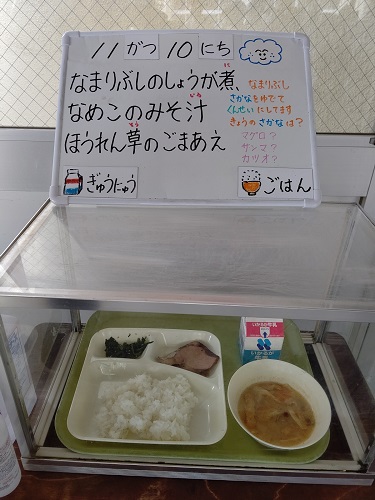 11がつ10にち
なまりぶしのしょうが煮、
に
なめこのみそ汁
しる
ほうれん草のごまあえ
そう
なまりぶし
さかなをゆでて
くんせいにしてます
きょうのさかなは？
マグロ？
サンマ？
カツオ？
ぎゅうにゅう
ごはん